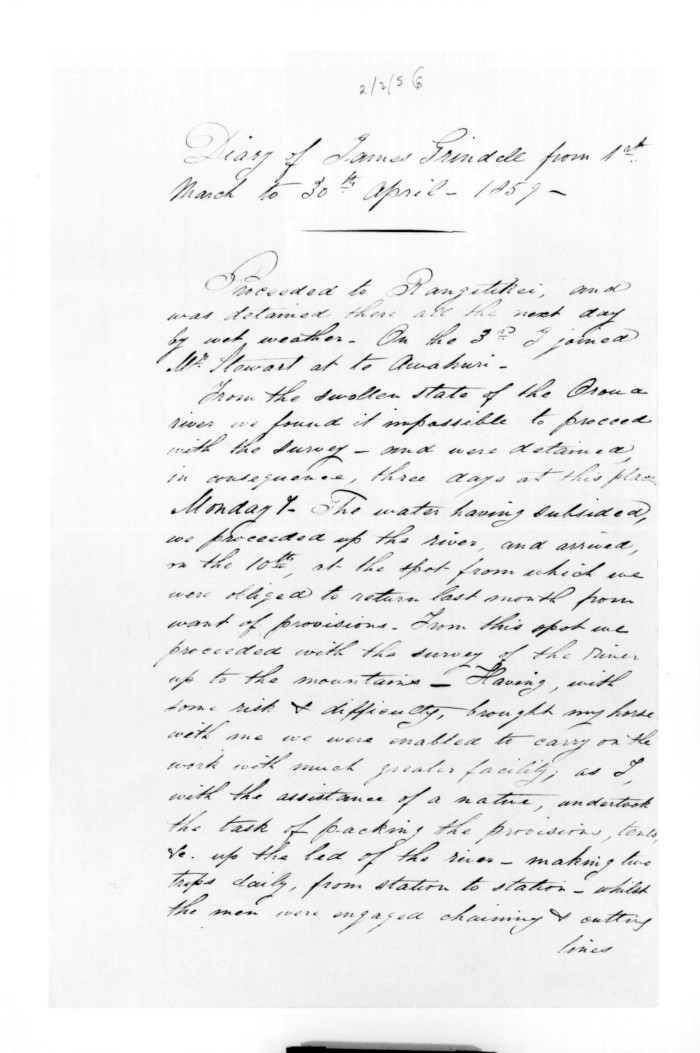 2/2/56
Diary of James Grindell from 1st
March to 30th April - 1859 -
Proceeded to Rangitikei, and
was detained there all the next day
by wet weather - On the 3rd I joined
Mr. Stewart at te Awahuri -
From the swollen state of the Oroua
river we found it impossible to proceed
with the survey - and were detained,
in consequence, three days at this place
Monday 7 - The water having subsided,
we proceeded up the river, and arrived,
on the 10th, at the spot from which we
were obliged to return last month from
want of provisions - From this spot we
proceeded with the survey of the river
up to the mountains - Having, with
some risk & difficulty, brought my horse
with me we were enabled to carry on the
work with much greater facility; as I,
with the assistance of a native, undertook
the task of packing the provisions, tents,
&c. up the bed of the river - making two
trips daily, from station to station - whilst
the men were engaged chaining & cutting
lines